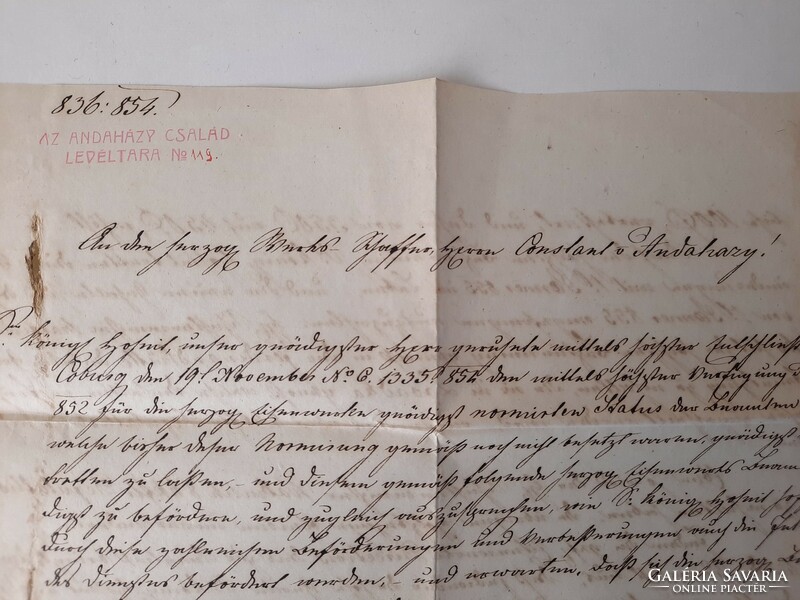 836: 854.
AZ ANDAHÁZY CSALÁD
LEVÉLTÁRA No 119.
An den herzog Werks-Schaffer, Herrn Constant v Andahazy!
Sr königl Hoheit, unser gnädigster Herr geruhete mittels höchster Entschließ
Coburg den 19t November No C. 1335/854 den mittels höchster Verfügung
852 für die herzog Eisenwerke gnädigst normirten Status der Beamten
welche bisher dieser Normirung gemäß noch nicht besetzt waren, gnädigst
tretten zu laßen, – und diesem gemäß folgende herzog Eisenwerks Beam
digst zu befördern, und zugleich auszusprechen, wie Sr königl Hoheit
durch diese zahlreichen Beförderungen und Verbesserungen auch die
des Dienstes befördert werden, – und erwarten, daß sich die herzog
GALÉRIA SAVARIA
ONLINE PIACTÉR